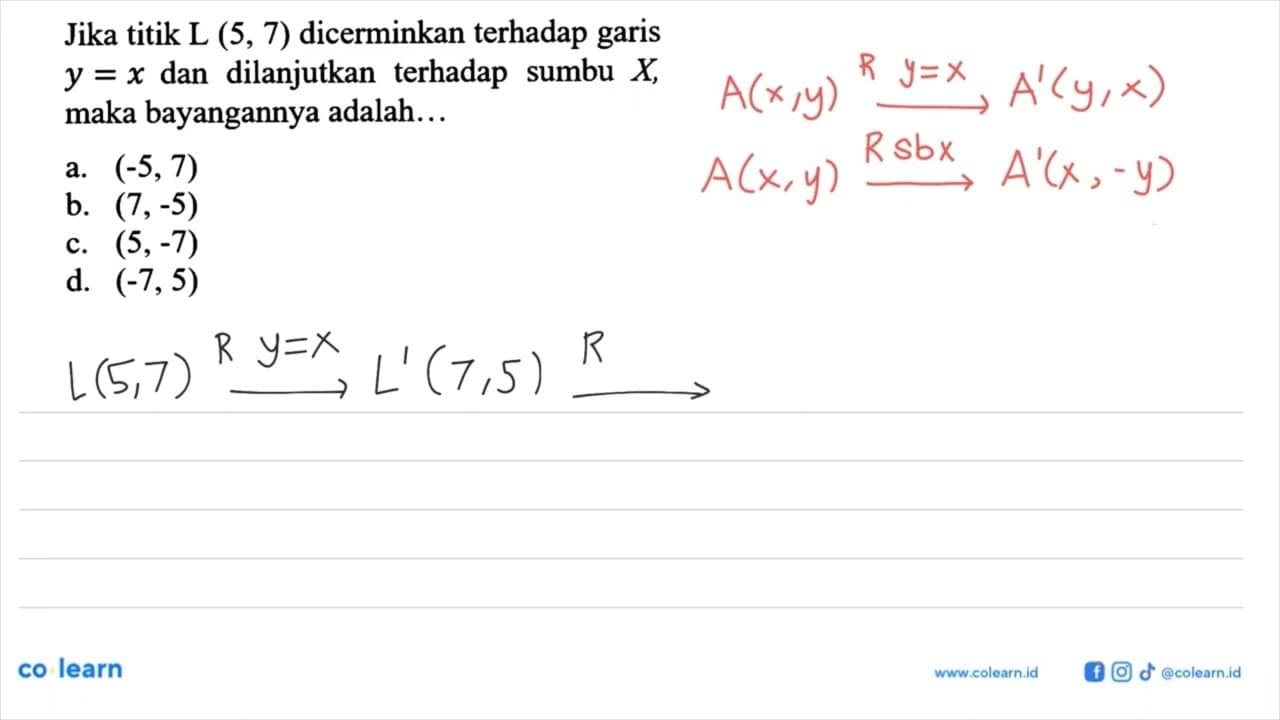 Jika titik L (5, 7) dicerminkan terhadap garis
y = x dan dilanjutkan terhadap sumbu X,
maka bayangannya adalah...
a. (-5, 7)
b. (7, -5)
c. (5, -7)
d. (-7, 5)
A(x,y) R y=x → A'(y,x)
A(x,y) R sbx → A'(x,-y)
L(5,7) R y=x → L'(7,5) R →
co learn
www.colearn.id @colearn.id